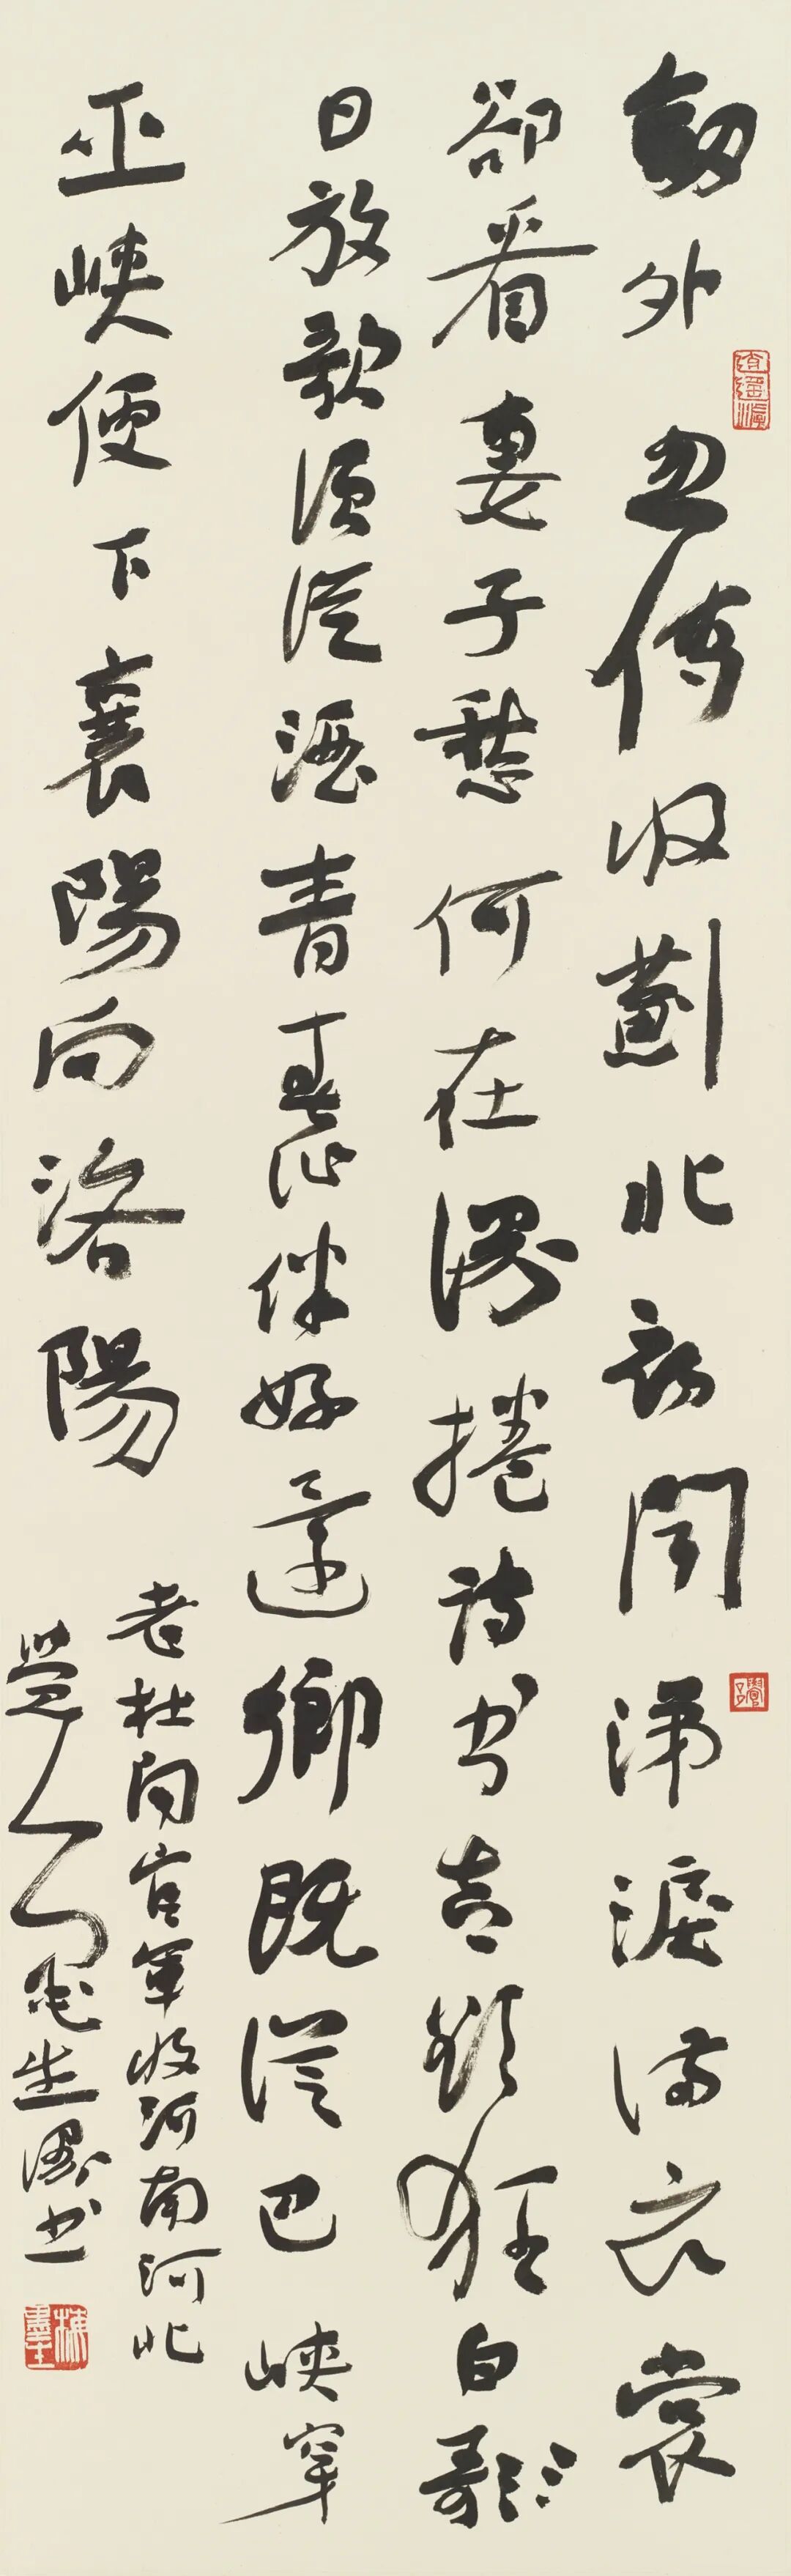 劍外忽傳收薊北初聞涕淚滿衣裳
卻看妻子愁何在漫捲詩書喜欲狂白歌
日放歌須從酒青春作伴好還鄉既從巴峽穿
巫峽便下襄陽向洛陽
老杜聞官軍收河南河北
覺 生 书
梅墨生